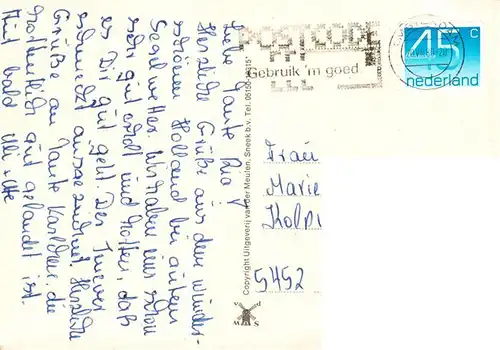 Liebe Tante Ria,
Herzliche Grüße aus dem wunder-
schönen Holland bei gutem
Segelwetter. Wir haben uns schon
sehr gut erholt und hoffen, daß
es Dir gut geht. Der
schmeckt ausgezeichnet. Herzliche
Grüße an Tante Käthchen, die
hoffentlich gut gelandet ist.
Auf bald
Uli + Ute
Copyright Uitgeverij van der Meulen, Sneek b.v. Tel. 05150-
POSTCODE
Gebruik 'm goed
45 c
nederland
Frau
Marie
Kolpi
5452